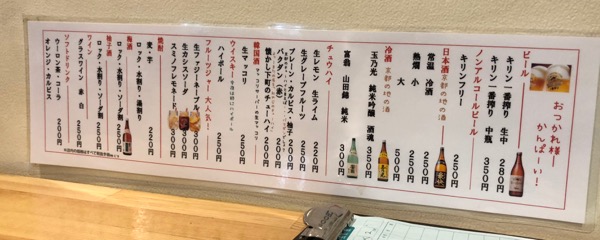 おつかれ様
かんぱーい！
ビール
キリン一番搾り 生中 280円
キリン一番搾り 中瓶 350円
ノンアルコールビール
キリンフリー 250円
日本酒 京都の地の酒
常温 冷酒 250円
熱燗 小 250円
大 500円
冷酒 京都の地の酒
玉乃光 純米吟醸 酒魂 350円
富翁 山田錦 純米 300円
チュウハイ
生レモン 生ライム 220円
生グレープフルーツ 250円
プレーン・カルピス・柚子 200円
バクダン（赤）（白） 220円
懐かし下町のチューハイ
韓国酒
生マッコリ 250円
ウイスキー
ハイボール 250円
フルーツジャー 大人気！
300円
生カシスソーダ 300円
スミノフレモネード 300円
焼酎
麦・芋
ロック・水割り・湯割り 220円
梅酒
ロック・水割り・ソーダ割 250円
柚子酒
ロック・水割り・ソーダ割 250円
ワイン
グラスワイン 赤・白 250円
ソフトドリンク
ウーロン茶・コーラ 200円
オレンジ・カルピス 200円